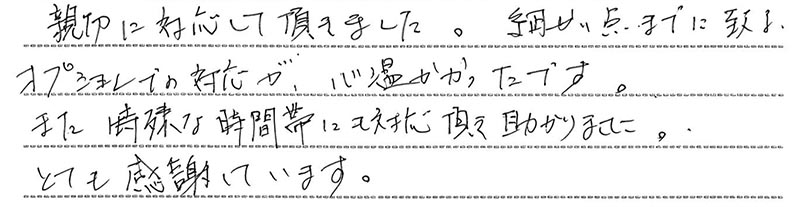 親切に対応して頂きました。細かい点までに致る
オプションでの対応が、心温かかったです。
また特殊な時間帯にも対応頂き助かりました。
とても感謝しています。